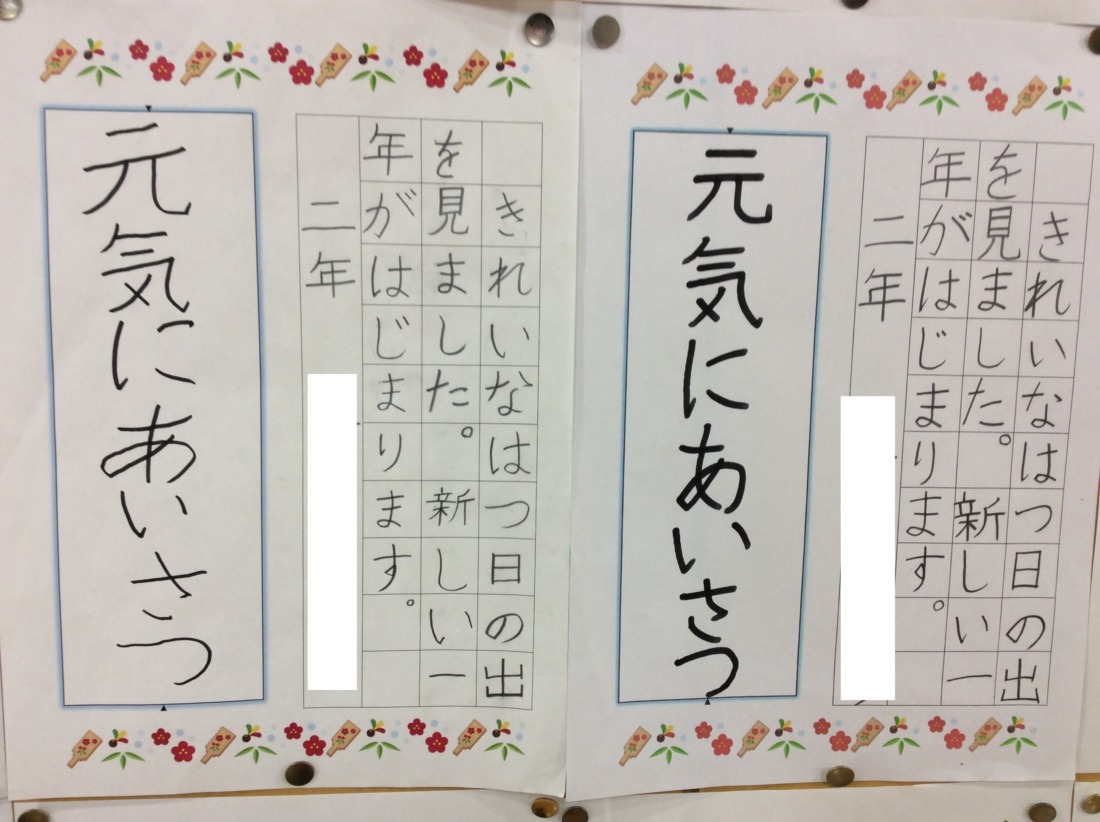 元気にあいさつ
きれいなはつ日の出
を見ました。新しい一
年がはじまります。
二年
元気にあいさつ
きれいなはつ日の出
を見ました。新しい一
年がはじまります。
二年